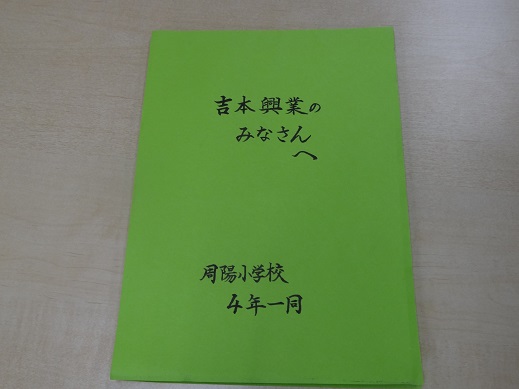 吉本興業の
みなさん
へ
周陽小学校
4年一同